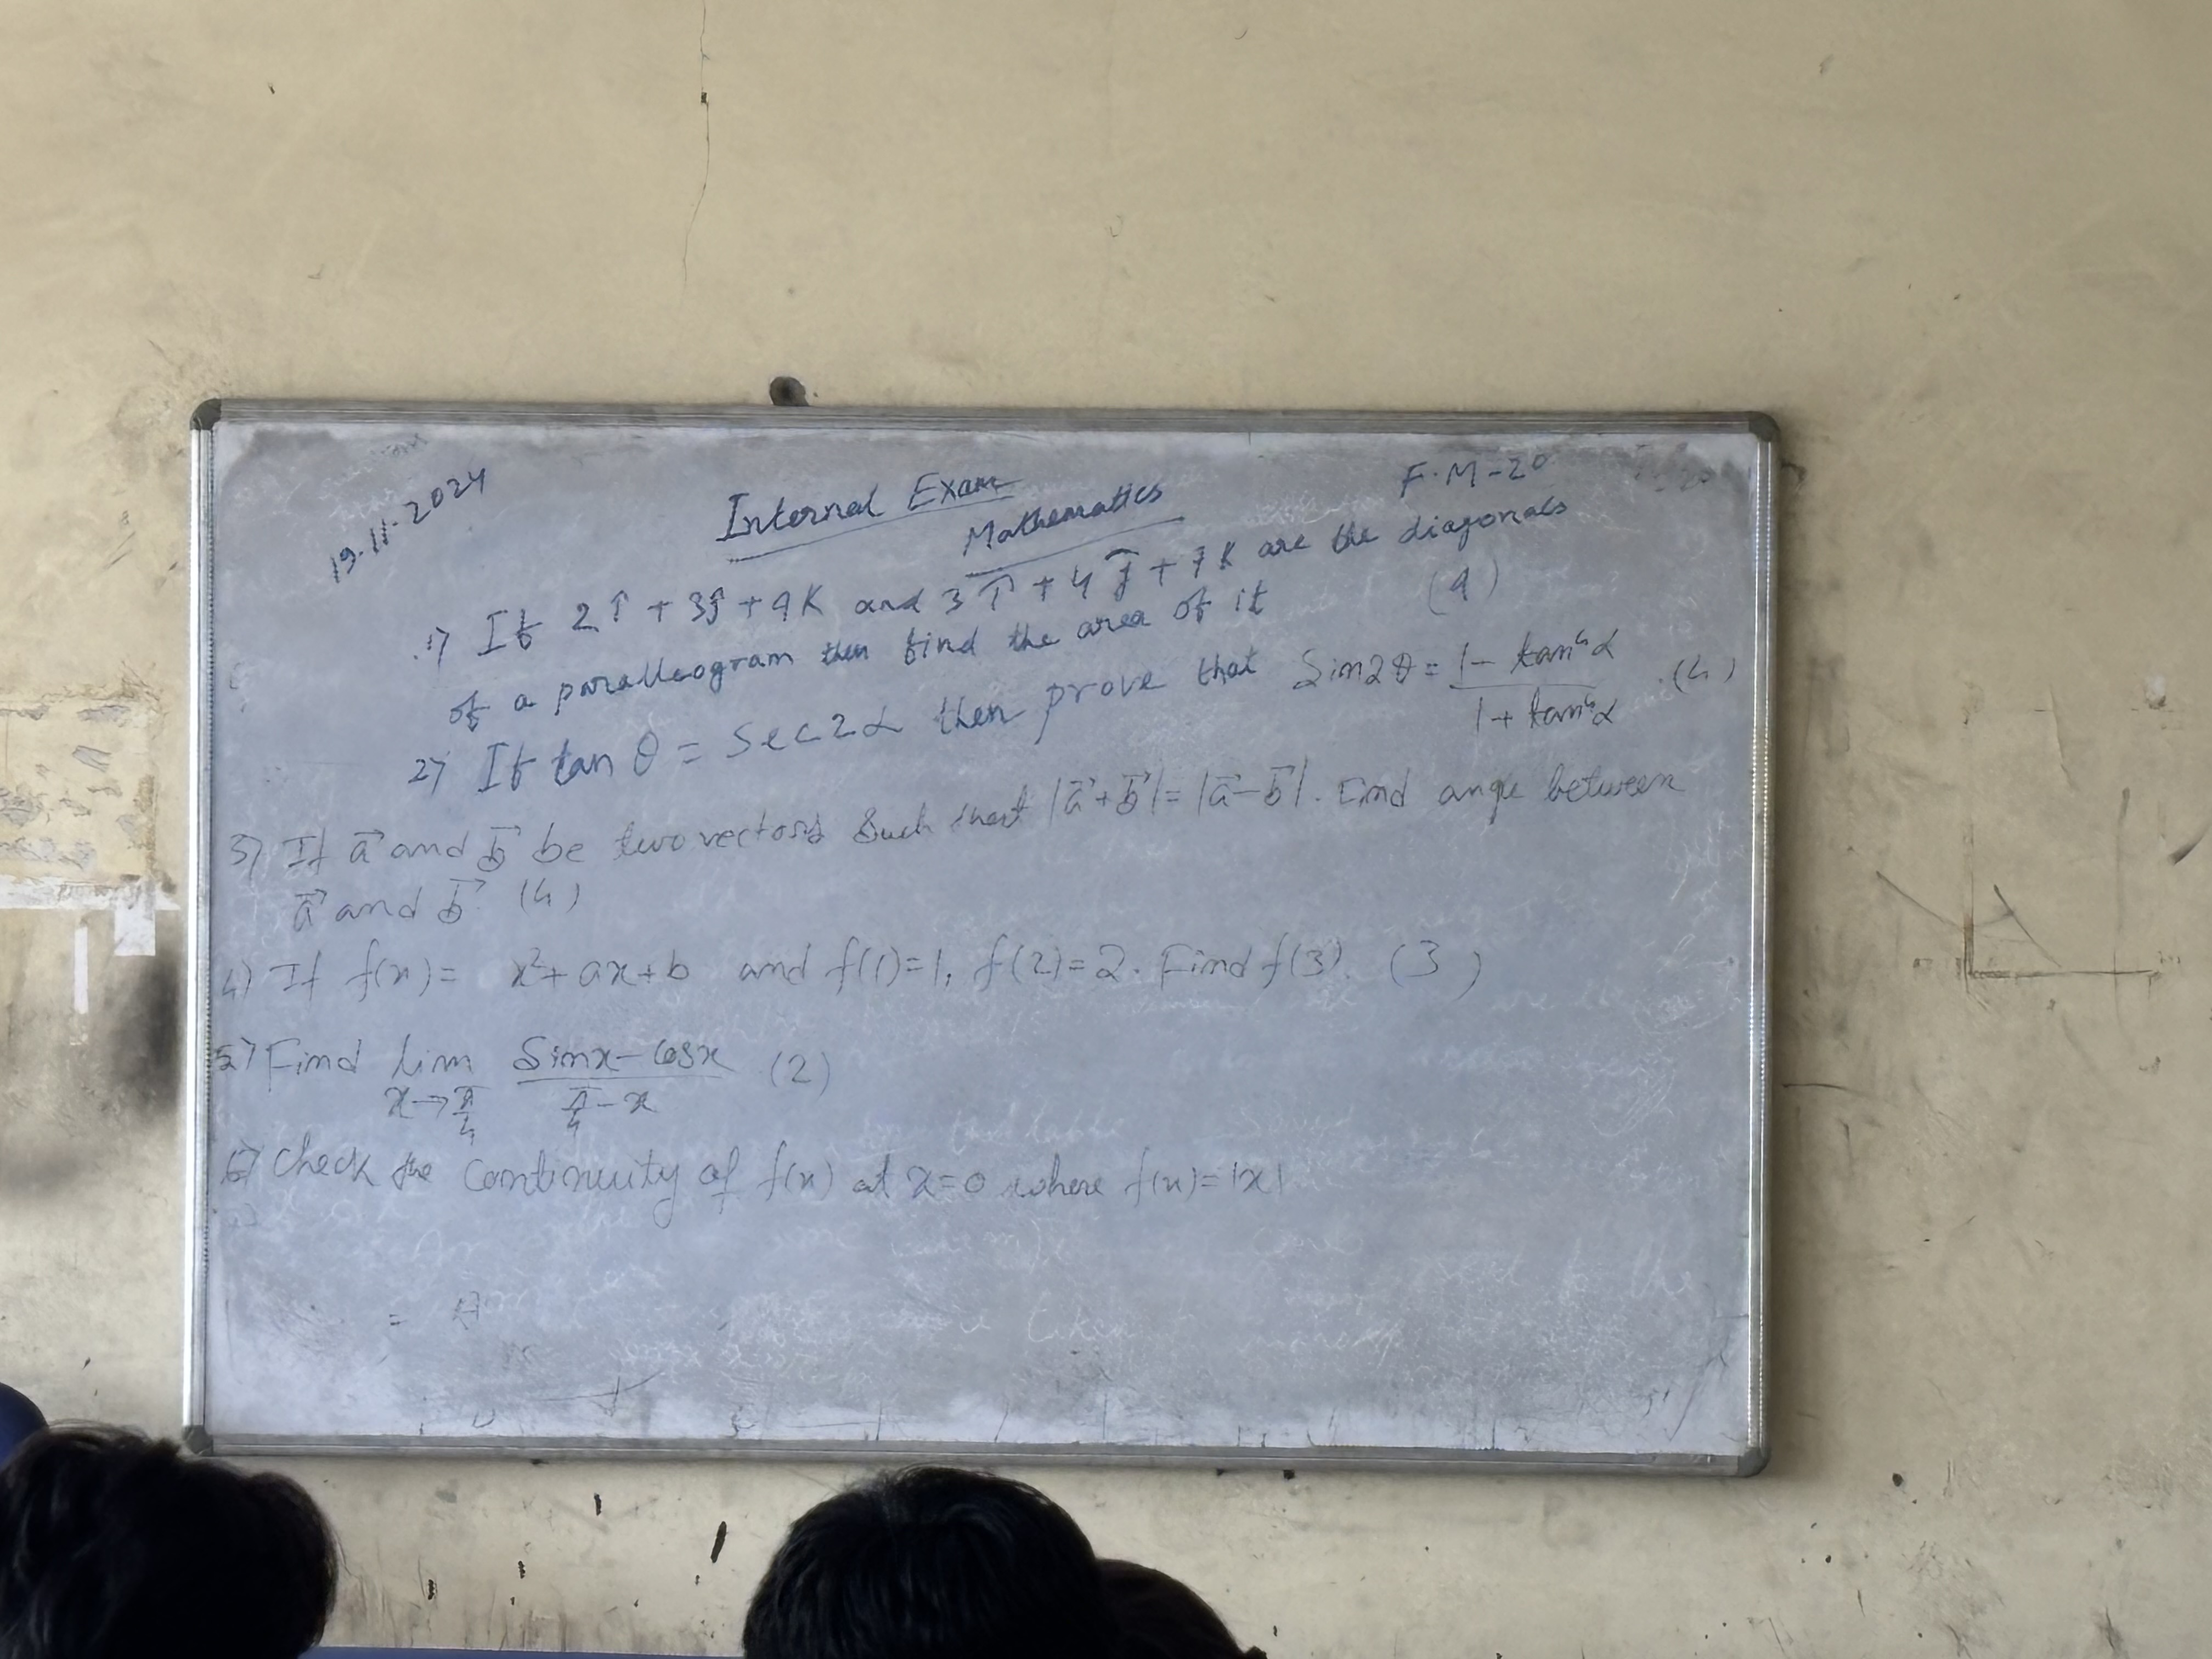 19.11.2024
Internal Exam
F.M-20
Mathematics
1) If 2î + 3ĵ + 9K and 3î + 4ĵ + 7K are the diagonals
of a paralleogram then find the area of it (4)
2) If tan θ = sec2α then prove that Sin2θ = (1 - tan⁴α)/(1 + tan⁴α) .(4)
3) If a⃗ and b⃗ be two vectors such that |a⃗+b⃗| = |a⃗-b⃗|. Find angle between
a⃗ and b⃗ (4)
4) If f(x) = x²+ax+b and f(1)=1, f(2)=2. Find f(3). (3)
5) Find lim x→π/4 (Sinx-Cosx)/(π/4-x) (2)
6) Check the continuity of f(x) at x=0 where f(x)=|x|